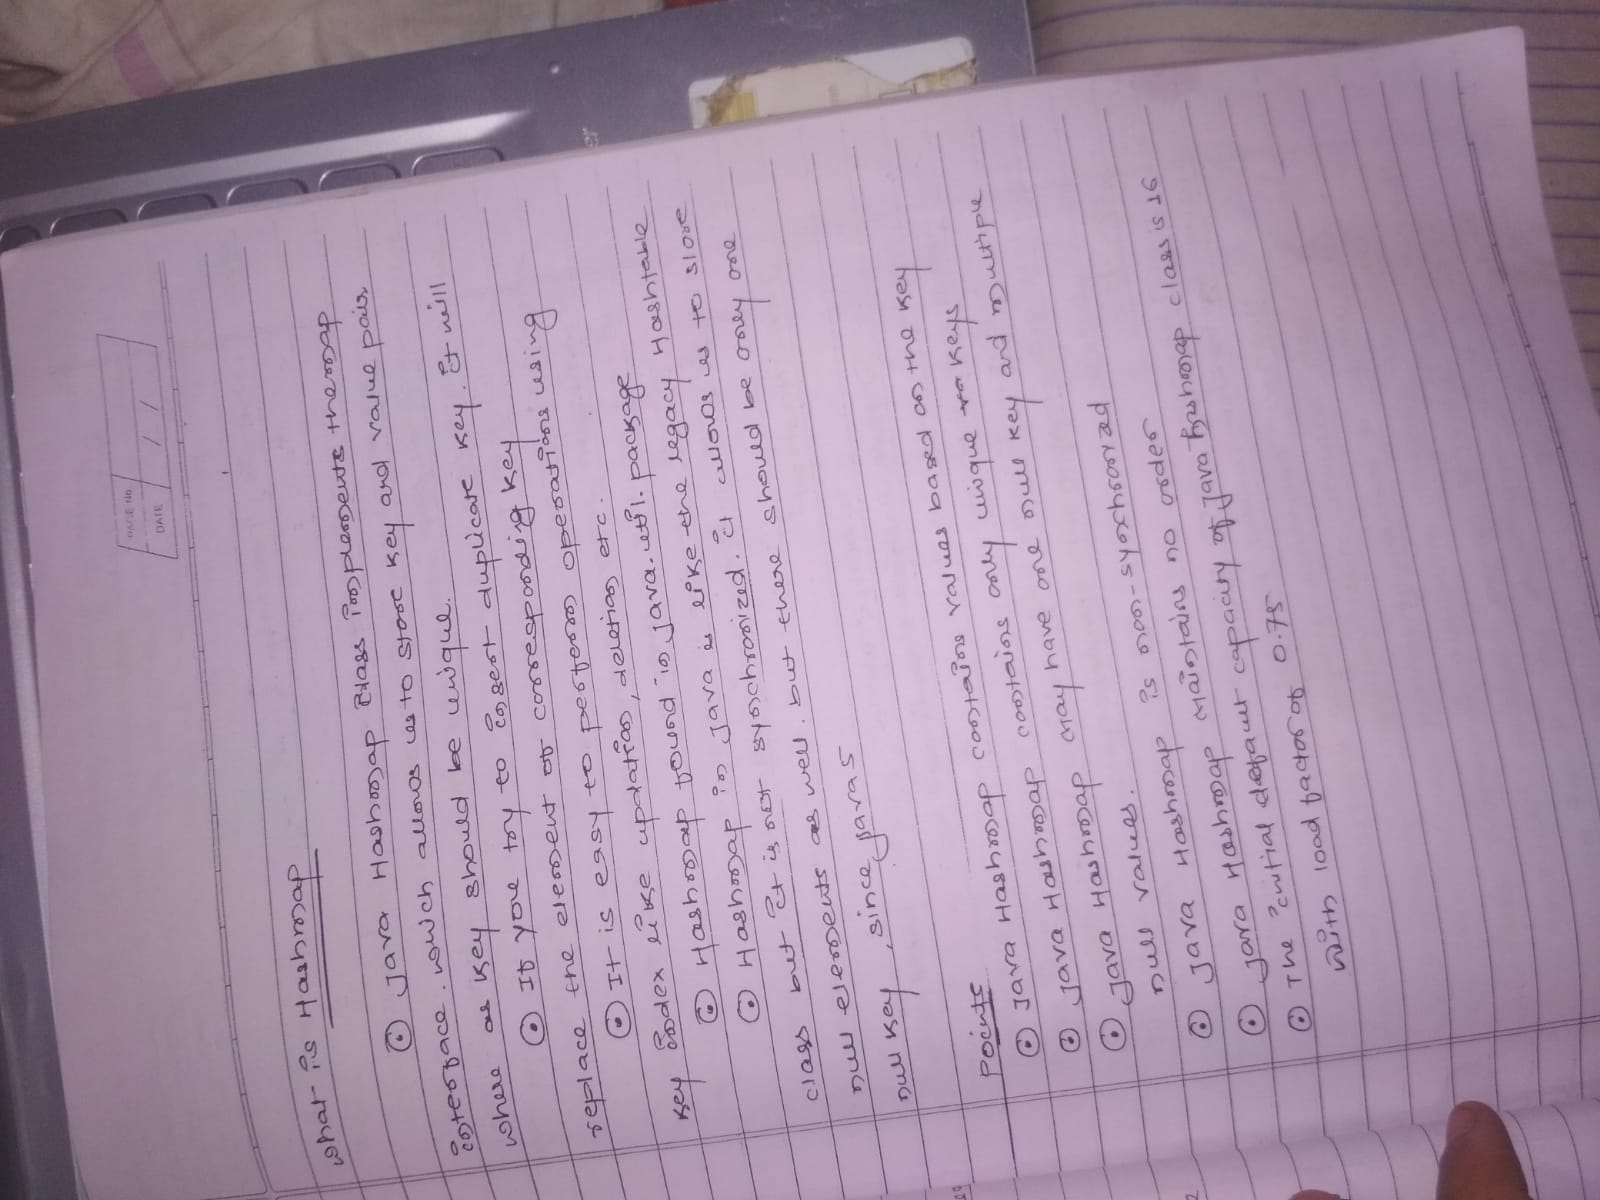 PAGE No.
DATE / /
what is Hashmap
⊙ Java Hashmap class implements the map
interface. which allows us to store key and value pair.
where as key should be unique.
⊙ If you try to insert duplicate key. It will
replace the element of corresponding key
⊙ It is easy to perform operations using
key index like updation, deletion etc.
⊙ Hashmap found in java.util.package
⊙ Hashmap in java is like the legacy Hashtable
class but it is not synchronized. it allows us to store
null elements as well. but there should be only one
null key, since java 5
points
⊙ Java Hashmap contains values based on the key
⊙ Java Hashmap contains only unique keys
⊙ Java Hashmap may have one null key and multiple
null values.
⊙ Java Hashmap is non-synchronized
⊙ Java Hashmap maintains no order
⊙ The initial default capacity of Java hashmap class is 16
with load factor of 0.75